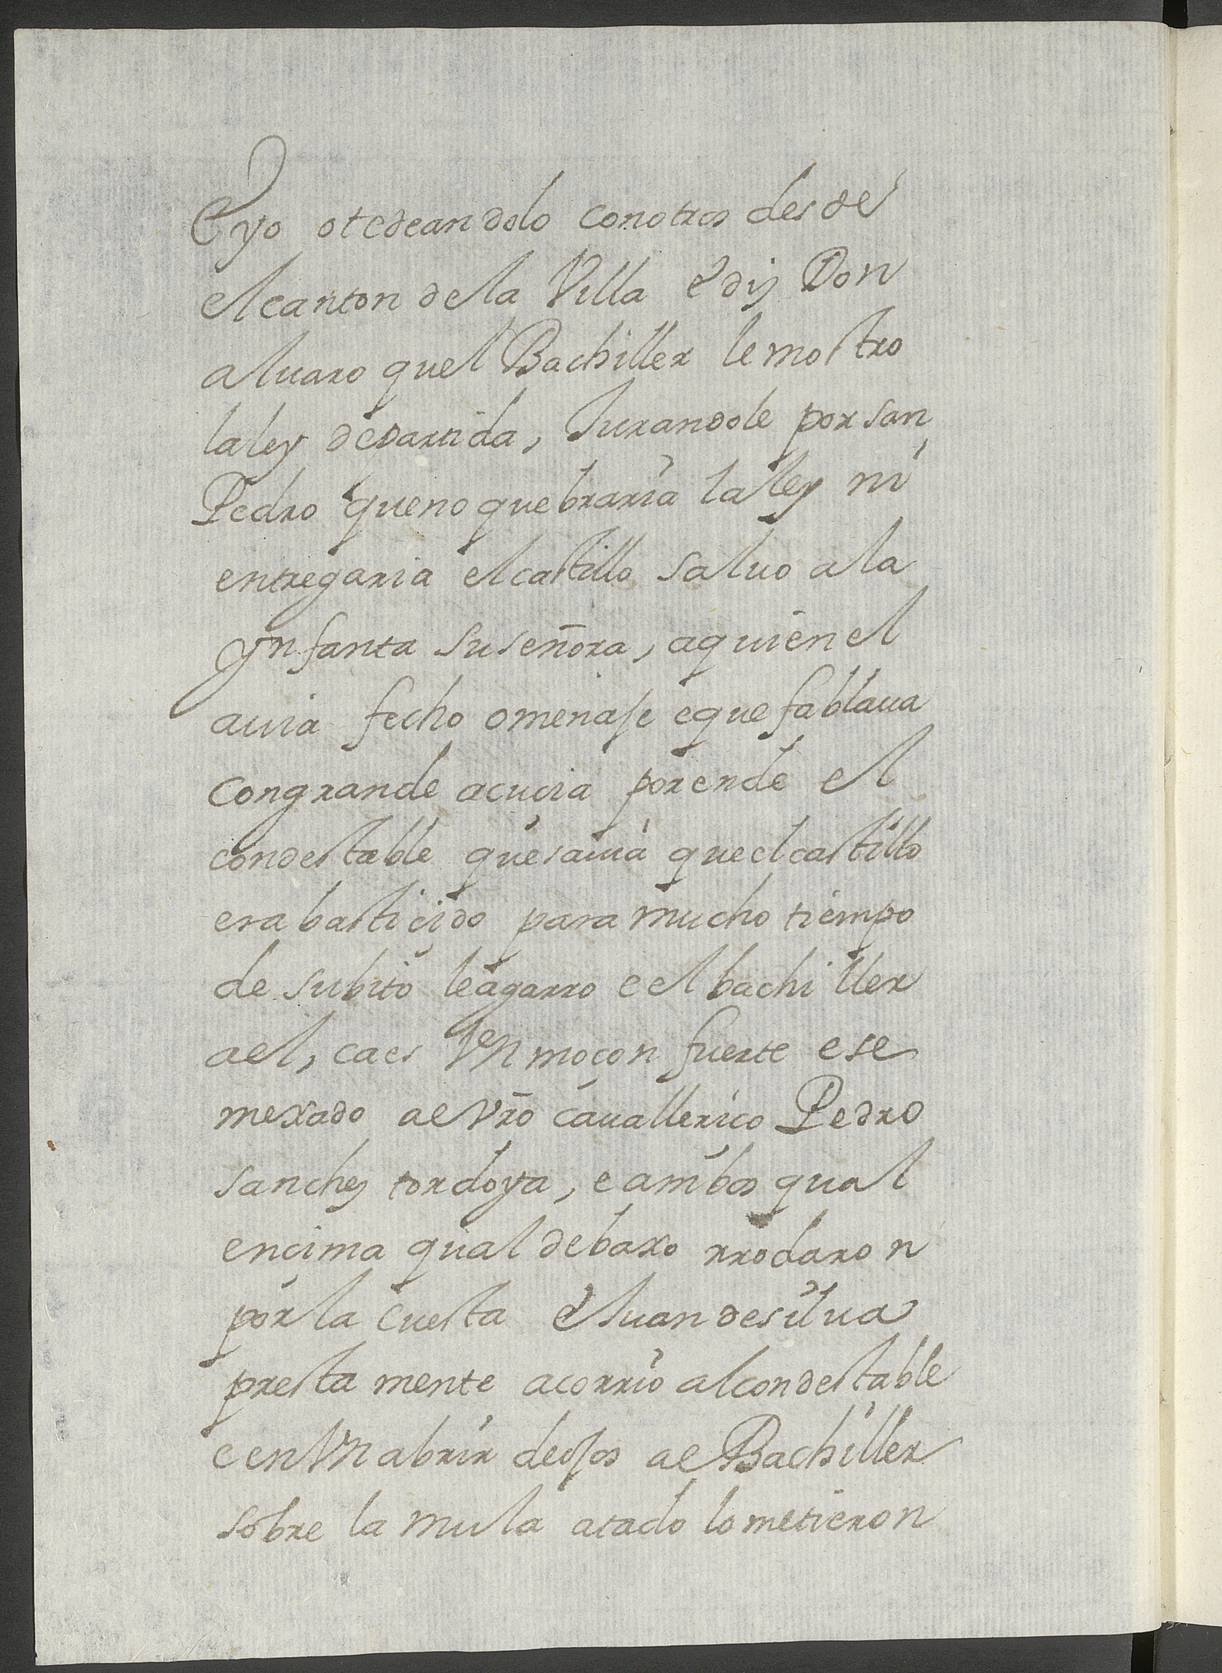 E yo otedeandolo con otros desde
el canton de la Villa e dis Don
aluaro quel Bachiller le mostro
la ley de partida, Jurandole por san
Pedro que no quebraria la ley ni
entregaria el castillo saluo a la
ynfanta su señora, a quien el
auia fecho omenaje e que fablaua
con grande acucia porende el
condestable que sauia que el castillo
era basticido para mucho tiempo
de subito le agarro e el bachiller
a el, ca es Un moçon fuerte e se
mexado a el vr̃o cauallerico Pedro
sanches tordoya, e ambos qual
encima qual debaxo rrodaron
por la cuesta e Juan de silua
presta mente acorrio al condestable
e en Un abrir de ojos a el Bachiller
sobre la mula atado lo metieron